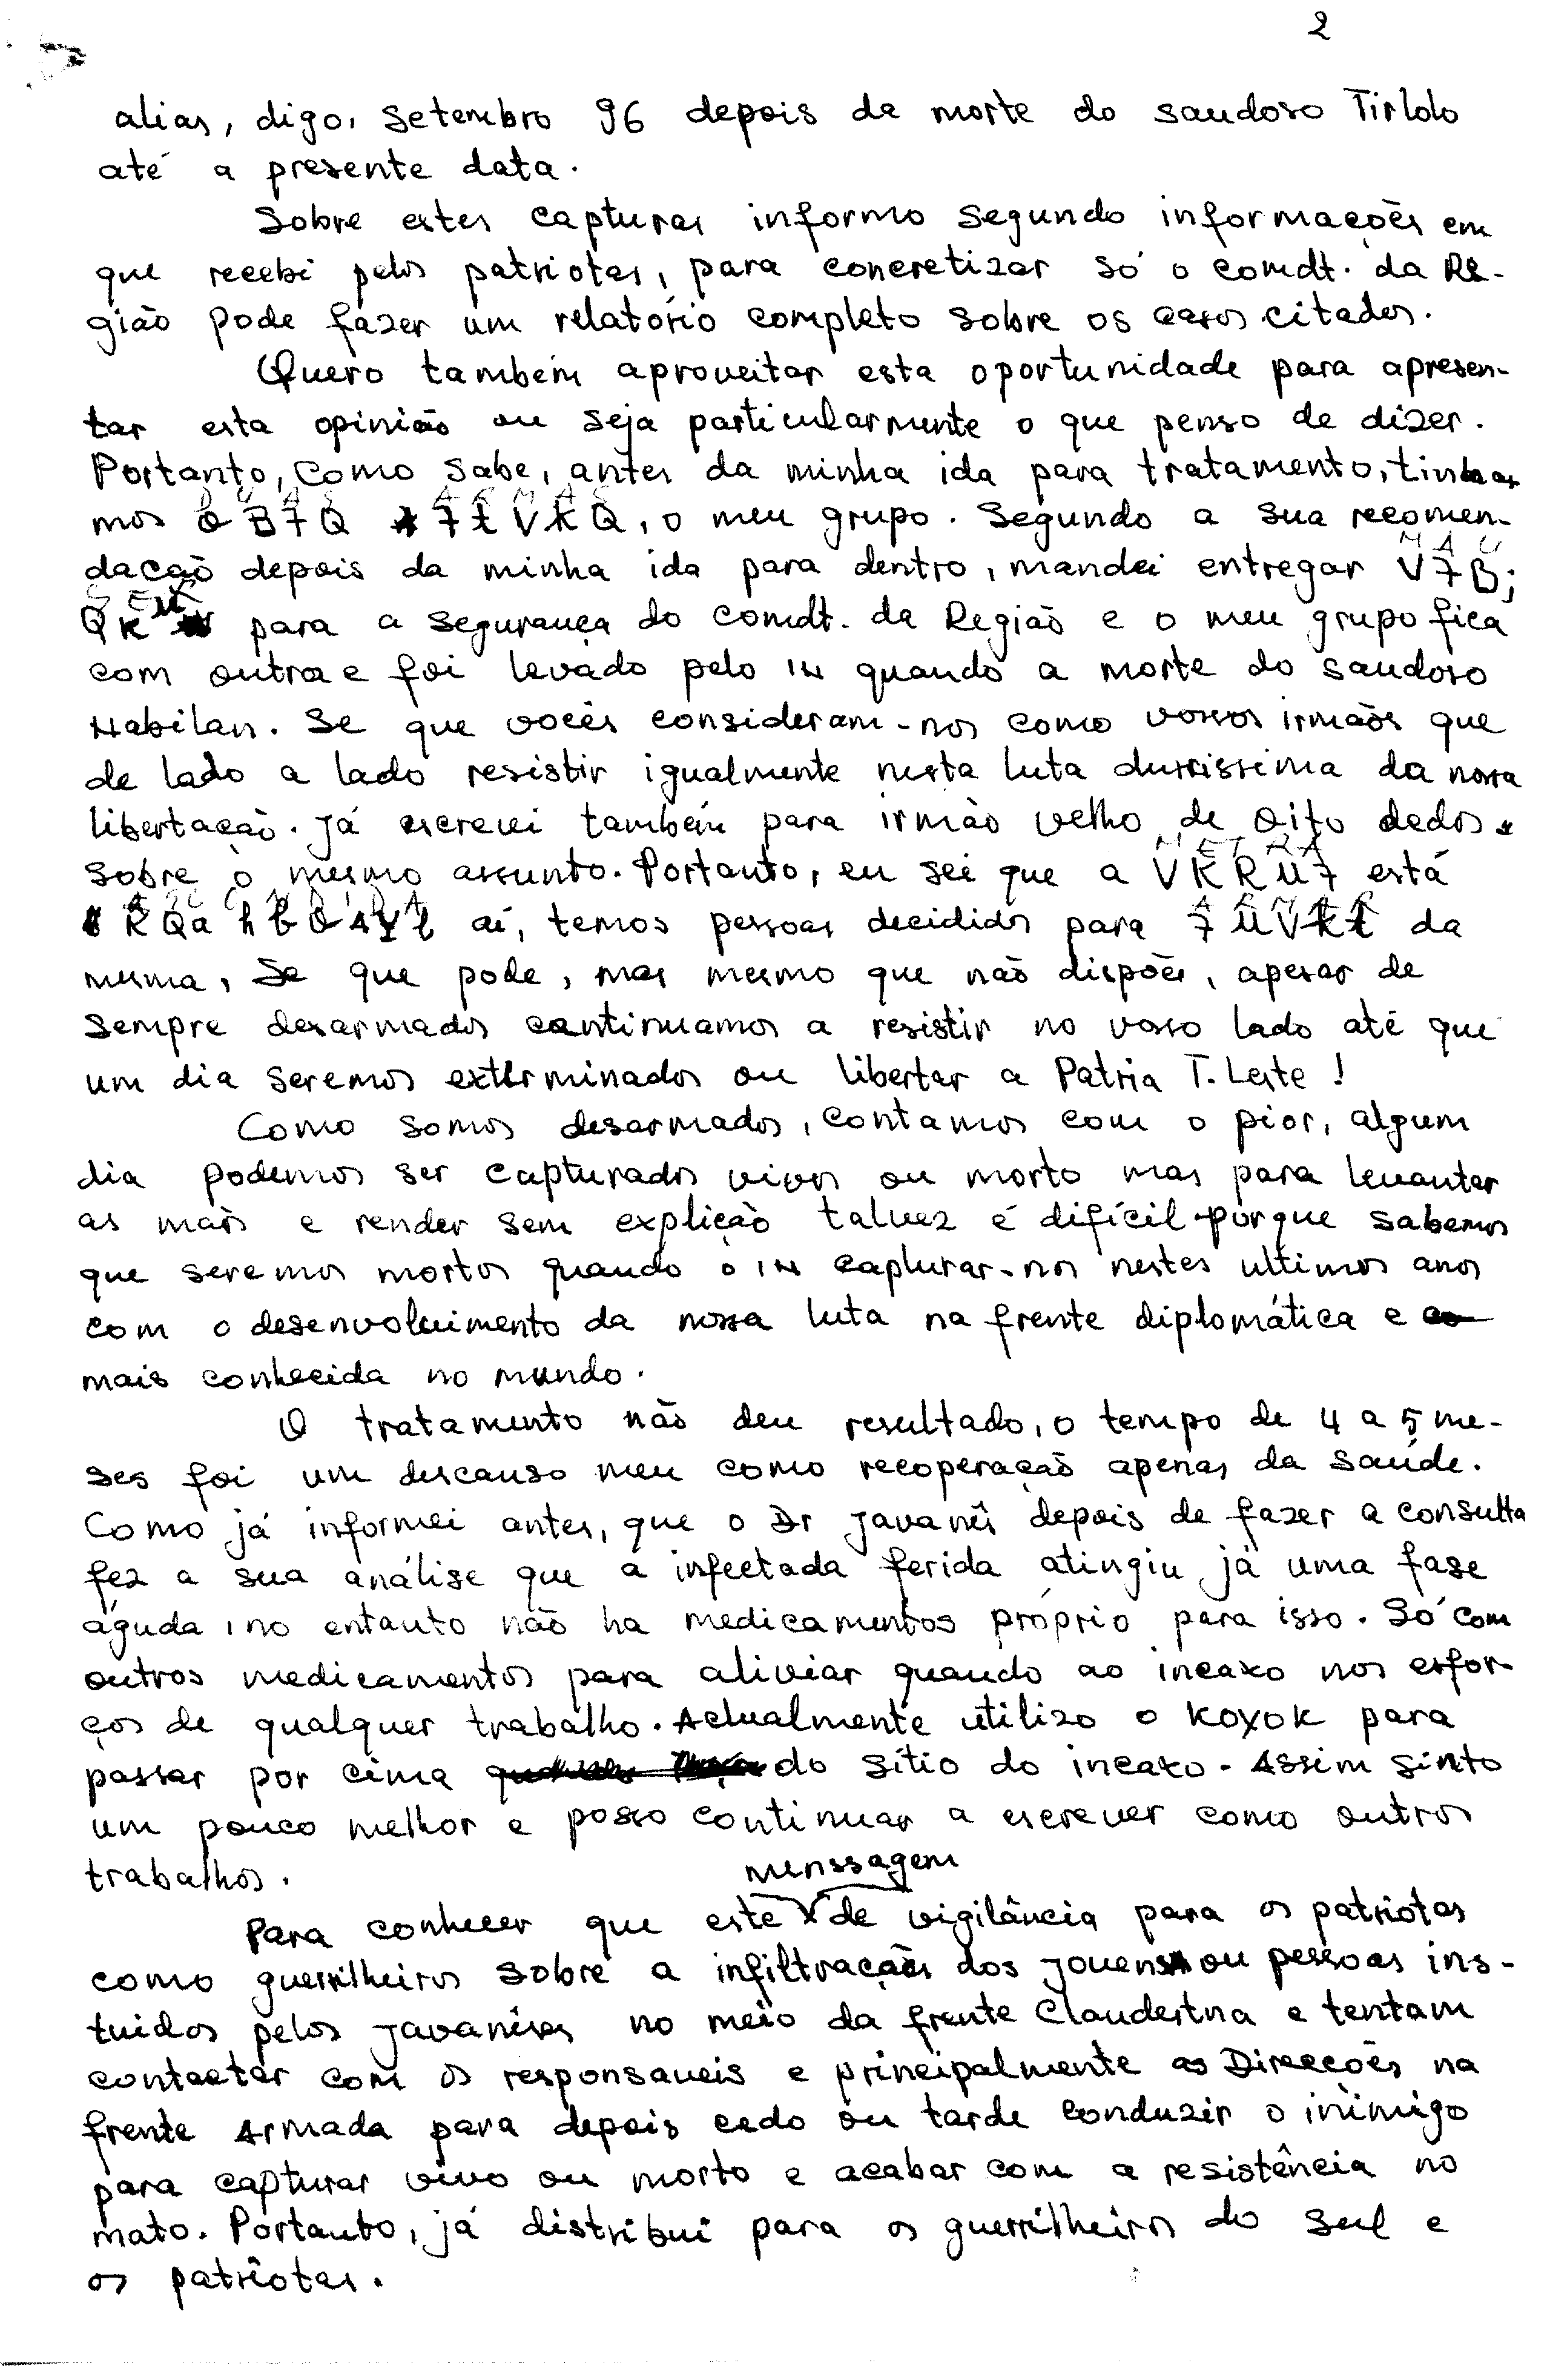 2
alias, digo, Setembro 96 depois da morte do saudoso Tirlolo
até a presente data.
Sobre estes capturas informo segundo informações em
que recebi pelos patriotas, para concretizar só o comdt. da Re-
gião pode fazer um relatório completo sobre os casos citados.
Quero também aproveitar esta oportunidade para apresen-
tar esta opinião ou seja particularmente o que penso de dizer.
Portanto, como sabe, antes da minha ida para tratamento, tinha
mos , o meu grupo. Segundo a sua recomen-
M A U
dação depois da minha ida para dentro, mandei entregar V7B;
QK para a segurança do comdt. da Região e o meu grupo fica
com outra e foi levado pelo IN quando a morte do saudoso
Nabilan. Se que vocês consideram-nos como vossos irmãos que
de lado a lado resistir igualmente nesta luta durissima da nossa
libertação. Já escrevi também para irmão velho de oito dedos
M E T R A
sobre o mesmo assunto. Portanto, eu sei que a VKRU7 está
aí, temos pessoas decididos para da
mesma, Se que pode, mas mesmo que não dispões, apesar de
sempre desarmados continuamos a resistir no vosso lado até que
um dia seremos exterminados ou libertar a Patria T. Leste !
Como somos desarmados, contamos com o pior, algum
dia podemos ser capturados vivos ou morto mas para levantar
as mãos e render sem explição talvez é difícil porque sabemos
que seremos mortos quando o IN capturar-nos nestes ultimos anos
com o desenvolvimento da nossa luta na frente diplomática e
mais conhecida no mundo.
O tratamento não deu resultado, o tempo de 4 a 5 me-
ses foi um descanso meu como recoperação apenas da saúde.
Como já informei antes, que o Dr Javanês depois de fazer a consulta
fez a sua análise que a infectada ferida atingiu já uma fase
águda, no entanto não ha medicamentos próprio para isso. Só com
outros medicamentos para aliviar quando ao incaxo nos esfor-
ços de qualquer trabalho. Actualmente utilizo o KOYOK para
passar por cima do sítio do incaxo. Assim sinto
um pouco melhor e posso continuar a escrever como outros
trabalhos.
menssagem
Para conhecer que este de vigilância para os patriotas
como guerrilheiros sobre a infiltração dos jovens ou pessoas ins-
tuidos pelos javaneses no meio da frente Clandestna e tentam
contactar com os responsaveis e principalmente as Direcções na
frente Armada para depois cedo ou tarde conduzir o inimigo
para capturar vivo ou morto e acabar com a resistência no
mato. Portanto, já distribui para os guerrilheiros do sul e
os patriotas.